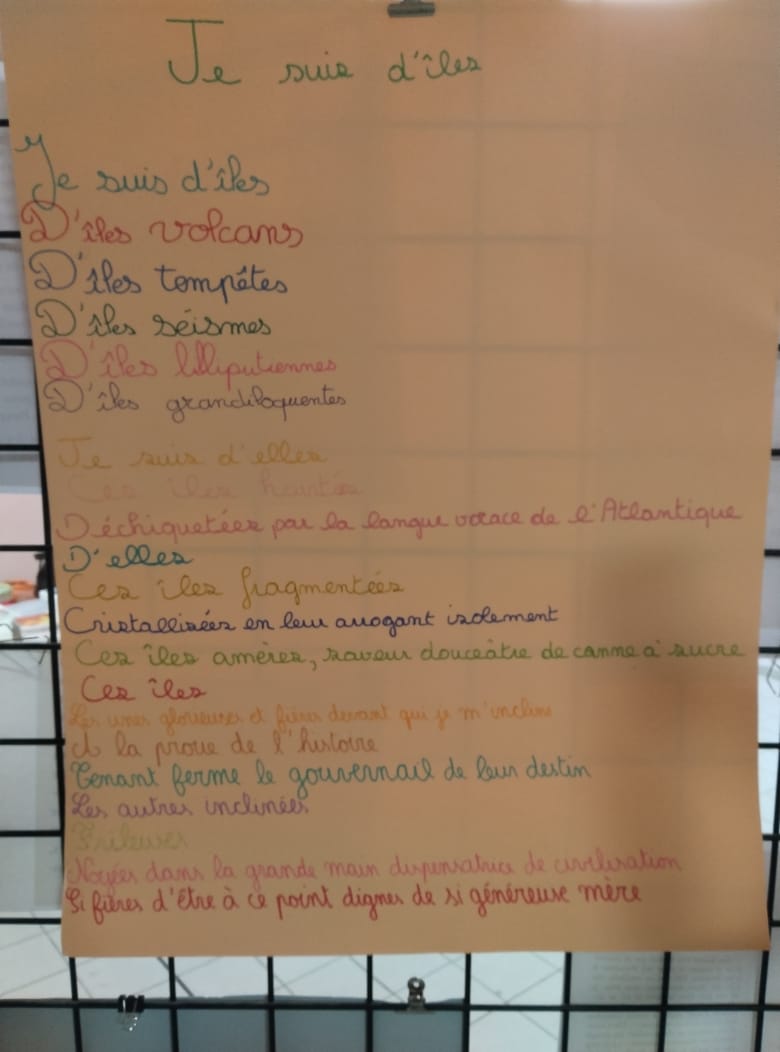 Je suis d'îles
Je suis d'îles
D'îles volcans
D'îles tempêtes
D'îles séismes
D'îles lilliputiennes
D'îles grandiloquentes
Je suis d'elles
Ces îles
Déchiquetées par la langue vorace de l'Atlantique
D'elles
Ces îles fragmentées
Cristallisées en leur arrogant isolement
Ces îles amères, saveur douceâtre de canne à sucre
Ces îles
Les unes glorieuses et fières devant qui je m'incline
A la proue de l'histoire
Tenant ferme le gouvernail de leur destin
Les autres inclinées
Frileuses
Noyées dans la grande main dispensatrice de civilisation
Si fières d'être à ce point dignes de si généreuse mère